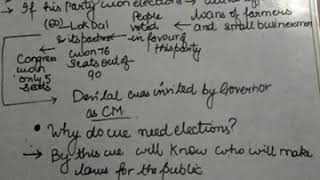 → If his Party won elections →
(60) Lok Dal People voted loans of farmers and small businessmen
& its partner in favour of this party
won 76 Seats out of 90
Congress won only 5 seats
Devi Lal was invited by Governor
as CM
• Why do we need elections?
→ By this we will know who will make
laws for the public